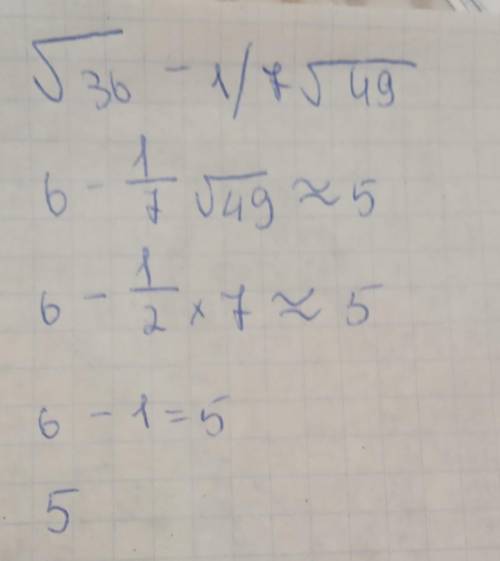 √36 - 1/7√49
6 - 1/7 √49 ≈ 5
6 - 1/2 × 7 ≈ 5
6 - 1 = 5
5